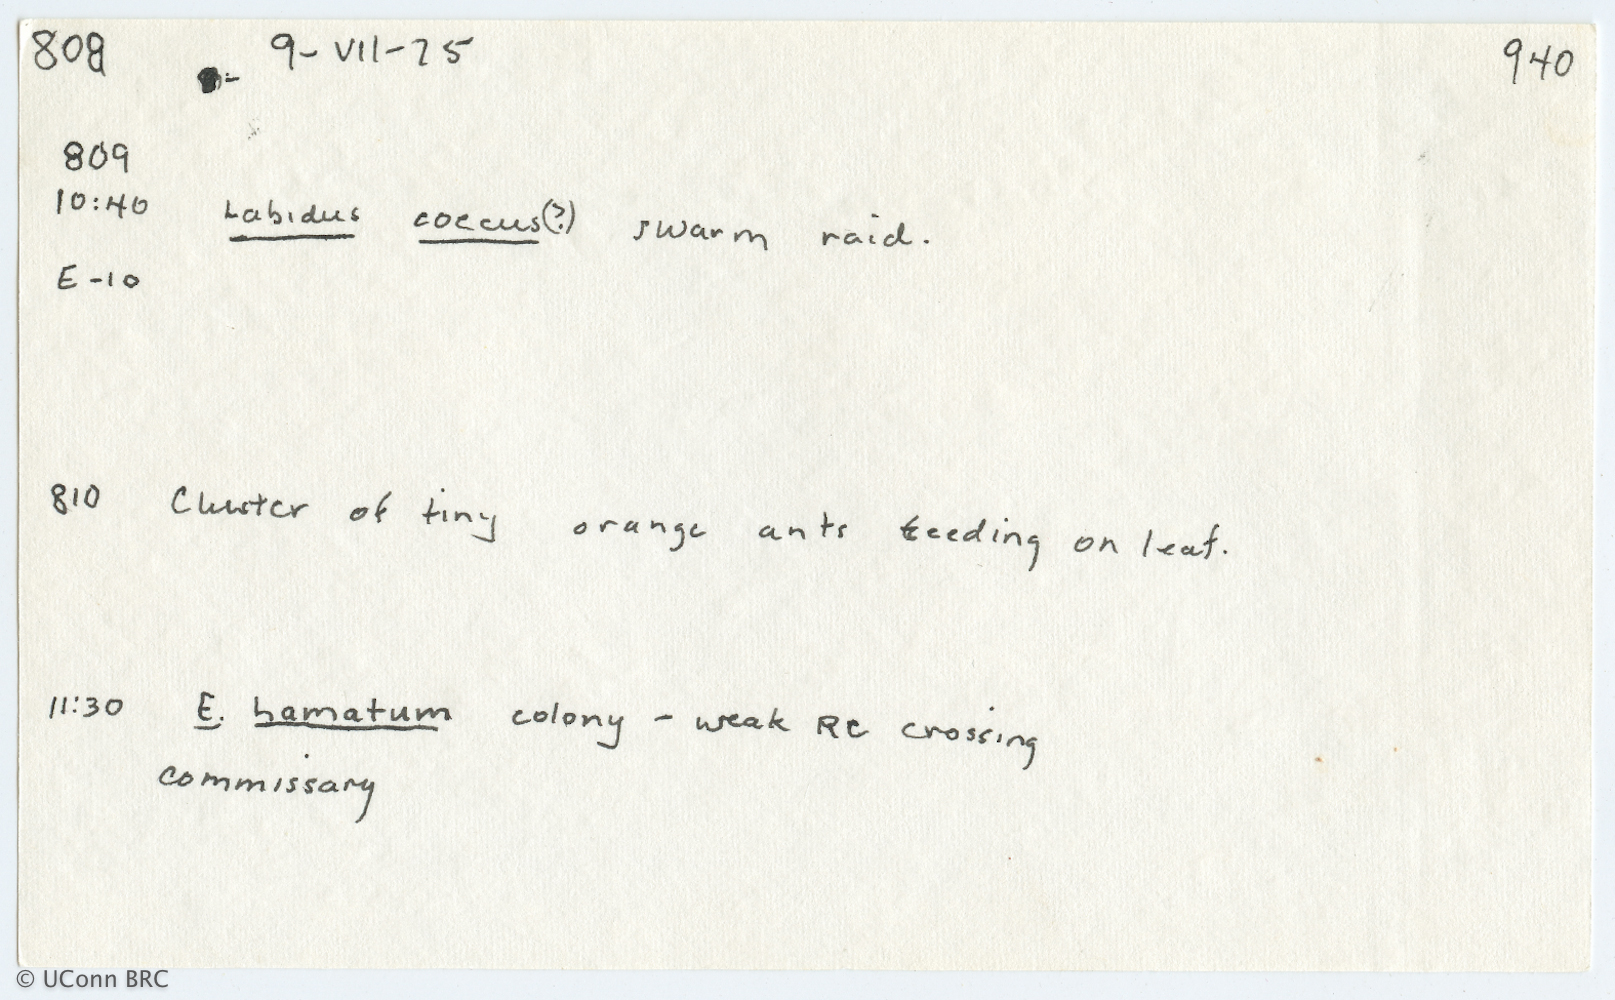 809 9-VII-75 940
809
10:40 Labidus coecus(?) swarm raid.
E-10
810 Cluster of tiny orange ants feeding on leaf.
11:30 E. hamatum colony - weak RC crossing
commissary
© UConn BRC